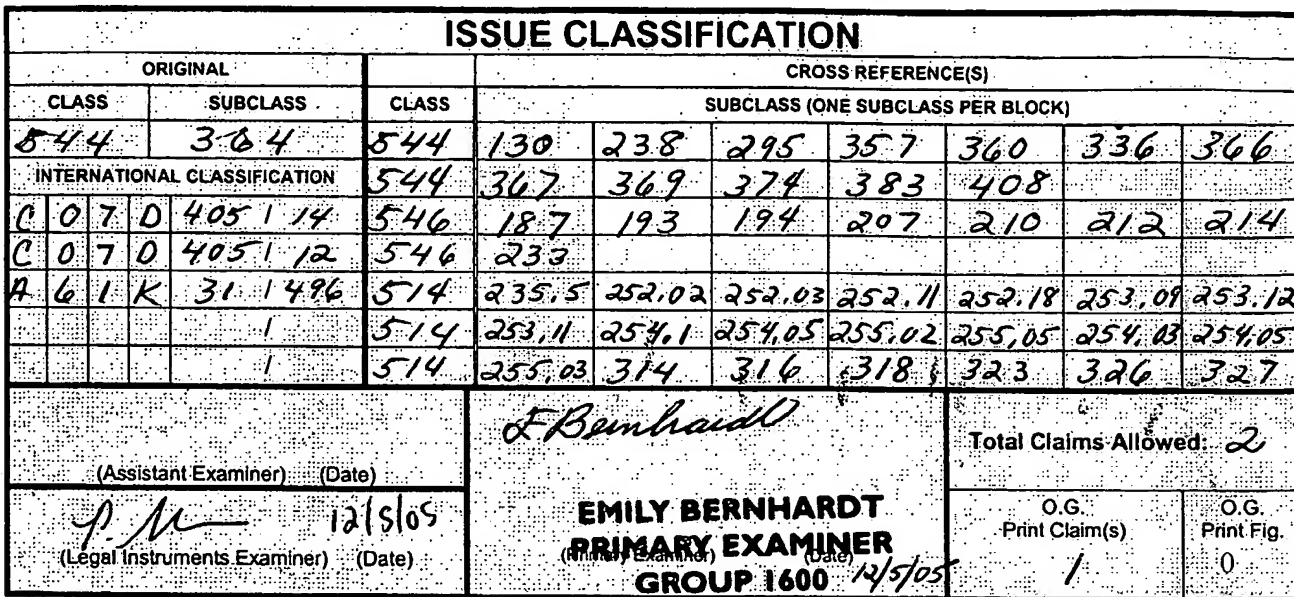 ISSUE CLASSIFICATION
ORIGINAL CROSS REFERENCE(S)
CLASS SUBCLASS CLASS SUBCLASS (ONE SUBCLASS PER BLOCK)
544 364 544 130 238 295 357 360 336 366
INTERNATIONAL CLASSIFICATION 544 367 369 374 383 408
C 0 7 D 405 / 14 546 187 193 194 207 210 212 214
C 0 7 D 405 / 12 546 233
A 6 1 K 31 / 496 514 235.5 252.02 252.03 252.11 252.18 253.09 253.12
/ 514 253.11 254.1 254.05 255.02 255.05 254.03 254.05
/ 514 255.03 314 316 318 323 326 327
E Bernhardt
Total Claims Allowed: 2
(Assistant Examiner) (Date)
12/5/05
(Legal Instruments Examiner) (Date)
EMILY BERNHARDT
PRIMARY EXAMINER
(Primary Examiner) (Date)
GROUP 1600 12/5/05
O.G. Print Claim(s)
1
O.G. Print Fig.
0